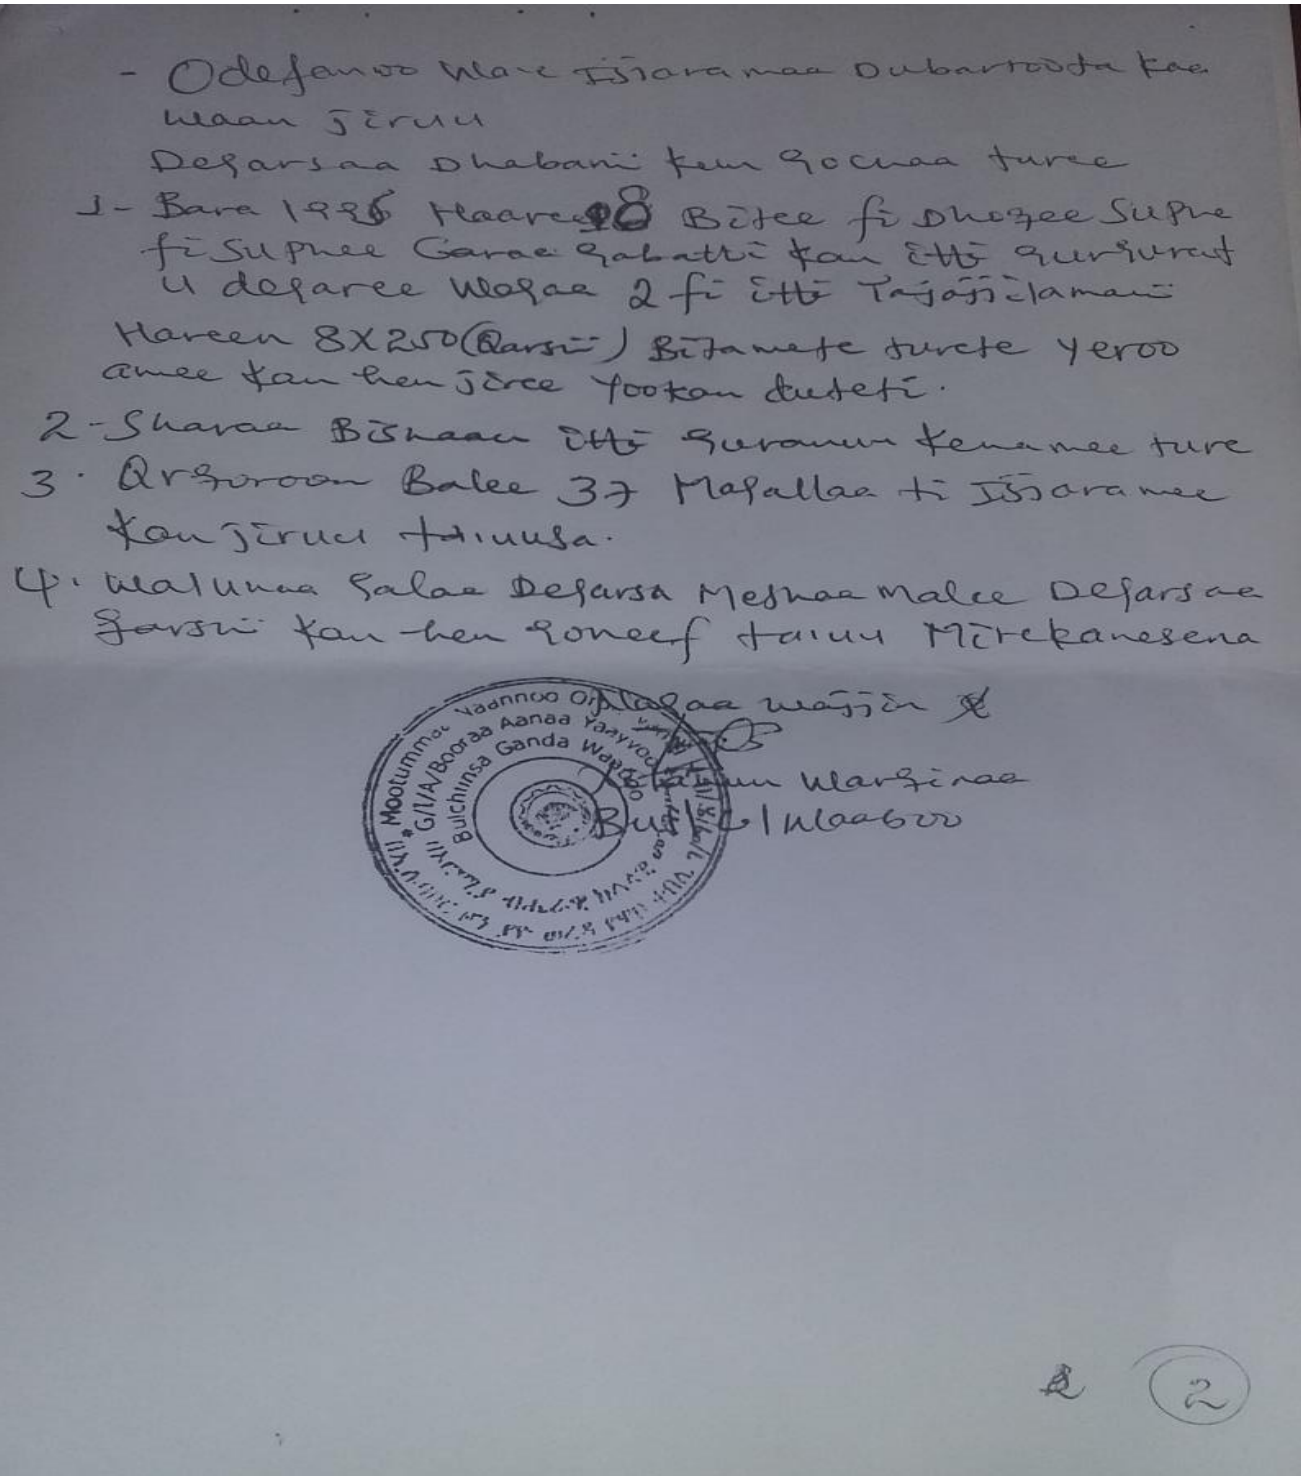 - Odefannoo Waee Ijjaramaa Dubartoota kae
waan jiruu
Degarsaa Dhabanii ken gochaa turee
1- Bara 1996 Haaree 8 Bitee fi Dhogee Suphe
fi Suphee Garae gabatti kan itti gurgurat
u degaree Wagaa 2 fi itti Tajajilamanii
Hareen 8X250 (Qarsii) Bitamete turete yeroo
amee kan hen jiree Yookan duteti.
2- Sharaa Bishaan itti guranun kenamee ture
3. Qrgoroon Balee 37 Magallaa ti Ijjaramee
kan jiruu ta'uusa.
4. Walumaa galaa Degarsa Meshaa malee Degarsae
garsii kan hen goneef ta'uu Mirekanesena
Nagaa wajjin
Warginaa
Bul/G/Waaboo
Mootummaa Naannoo
G/I/A/Booraa Aanaa Yaayyoo
Bulchiinsa Ganda Waaboo
2